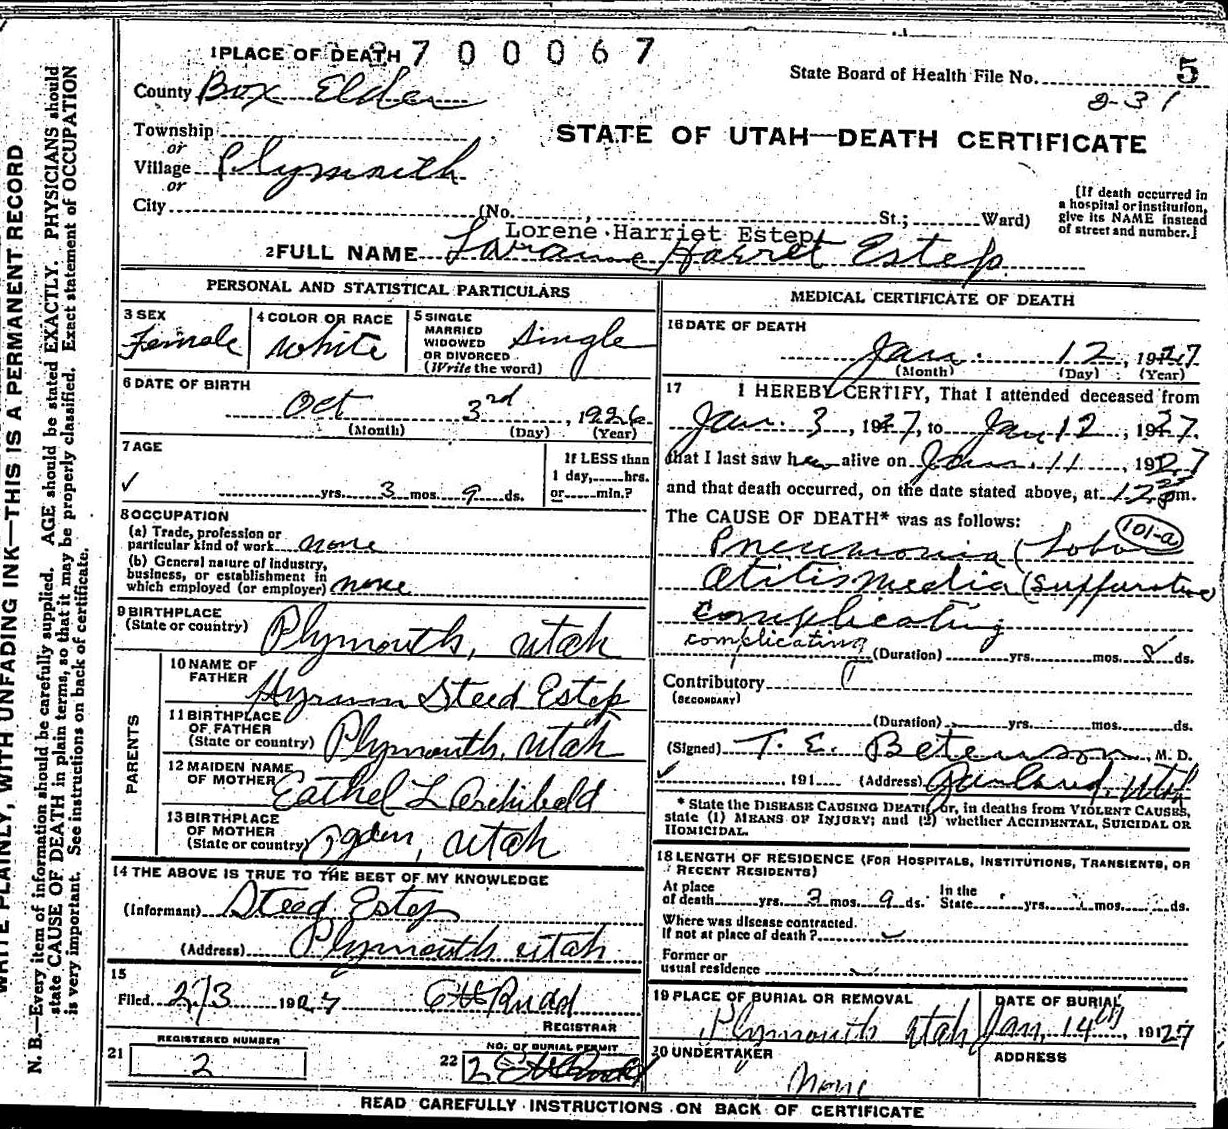 1 PLACE OF DEATH 2700067
State Board of Health File No. 5
County Box Elder
2-31
Township
or
STATE OF UTAH—DEATH CERTIFICATE
Village Plymouth
or
City (No. , St.; Ward)
[If death occurred in
a hospital or institution,
give its NAME instead
of street and number.]
Lorene Harriet Estep
2 FULL NAME Larainne Harret Estep
PERSONAL AND STATISTICAL PARTICULARS
3 SEX
Female
4 COLOR OR RACE
White
5 SINGLE
MARRIED
WIDOWED
OR DIVORCED
(Write the word)
Single
6 DATE OF BIRTH
Oct 3rd, 1926
(Month) (Day) (Year)
7 AGE
yrs. 3 mos. 9 ds.
If LESS than
1 day, hrs.
or min.?
8 OCCUPATION
(a) Trade, profession or
particular kind of work none
(b) General nature of industry,
business, or establishment in
which employed (or employer) none
9 BIRTHPLACE
(State or country) Plymouth, Utah
PARENTS
10 NAME OF
FATHER Hyrum Steed Estep
11 BIRTHPLACE
OF FATHER
(State or country) Plymouth, Utah
12 MAIDEN NAME
OF MOTHER Eathel L Archibald
13 BIRTHPLACE
OF MOTHER
(State or country) Ogden, Utah
14 THE ABOVE IS TRUE TO THE BEST OF MY KNOWLEDGE
(Informant) Steed Estep
(Address) Plymouth Utah
15
Filed 2/3 1927 Rudd
REGISTRAR
REGISTERED NUMBER
21 2
NO. OF BURIAL PERMIT
22 2
MEDICAL CERTIFICATE OF DEATH
16 DATE OF DEATH
Jan. 12, 1927
(Month) (Day) (Year)
17 I HEREBY CERTIFY, That I attended deceased from
Jan. 3, 1927, to Jan 12, 1927.
that I last saw her alive on Jan. 11, 1927
and that death occurred, on the date stated above, at 12 pm.
The CAUSE OF DEATH* was as follows:
101-a
Pneumonia (Lobar
Otitis Media (Suppurative
complicating
complicating
(Duration) yrs. mos. 8 ds.
Contributory
(SECONDARY)
(Duration) yrs. mos. ds.
(Signed) T. E. Betenson, M. D.
, 191 (Address) Garland, Utah
* State the DISEASE CAUSING DEATH, or, in deaths from VIOLENT CAUSES,
state (1) MEANS OF INJURY; and (2) whether ACCIDENTAL, SUICIDAL OR
HOMICIDAL.
18 LENGTH OF RESIDENCE (FOR HOSPITALS, INSTITUTIONS, TRANSIENTS, OR
RECENT RESIDENTS)
At place
of death yrs. 3 mos. 9 ds. In the
State yrs. mos. ds.
Where was disease contracted.
If not at place of death?
Former or
usual residence
19 PLACE OF BURIAL OR REMOVAL
Plymouth Utah
DATE OF BURIAL
Jan. 14th, 1927
20 UNDERTAKER
None
ADDRESS
READ CAREFULLY INSTRUCTIONS ON BACK OF CERTIFICATE
WRITE PLAINLY, WITH UNFADING INK—THIS IS A PERMANENT RECORD
N. B.—Every item of information should be carefully supplied. AGE should be stated EXACTLY. PHYSICIANS should
state CAUSE OF DEATH in plain terms, so that it may be properly classified. Exact statement of OCCUPATION
is very important. See instructions on back of certificate.